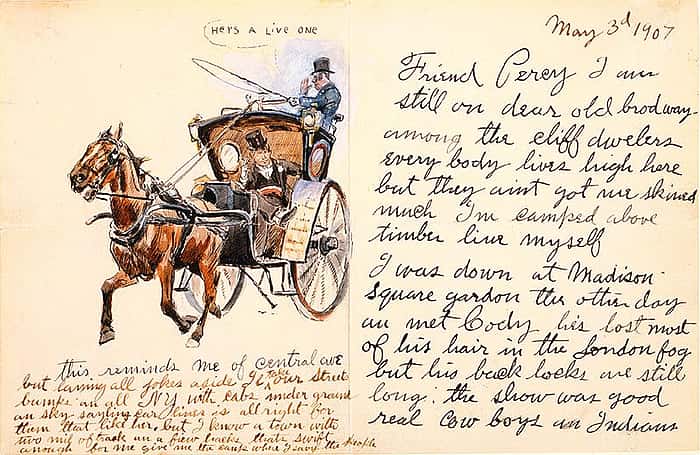 HERS A LIVE ONE
this reminds me of central ave
but laming all jokes aside I'l take our street
bumps an all N.Y. with cabs under grand
an sky sayling car lines is all right for
them that like her, but I know a town with
two mil of track an a fiew hacks thats swift
enough for me give me the camp where I savy the people
May 3d 1907
Friend Percy I am
still on dear old brodway
among the cliff dwelers
every body lives high here
but they aint got me skined
much I'm camped above
timber line myself
I was down at Madison
Square gardon the other day
an met Cody hes lost most
of his hair in the London fog
but his back locks are still
long; the show was good
real cow boys an Indians